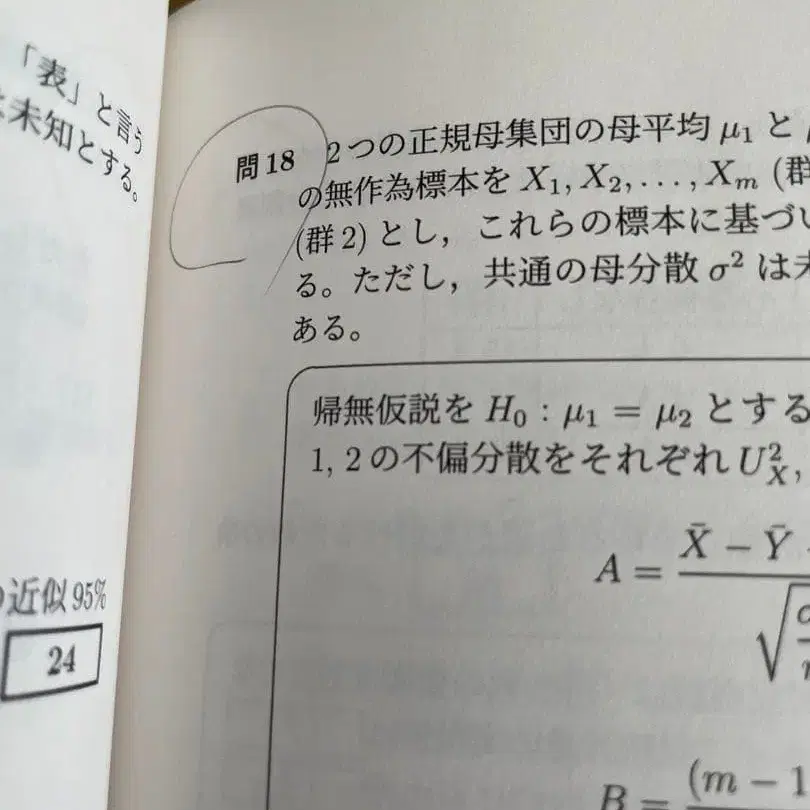 「表」と言う
未知とする。
近似95%
24
問18 2つの正規母集団の母平均 μ₁ と
の無作為標本を X₁, X₂, ..., Xₘ (群
(群2) とし，これらの標本に基づい
る。ただし，共通の母分散 σ² は
ある。
帰無仮説を H₀ : μ₁ = μ₂ とする
1, 2 の不偏分散をそれぞれ U²_X,
A = X̄ − Ȳ
B = (m − 1